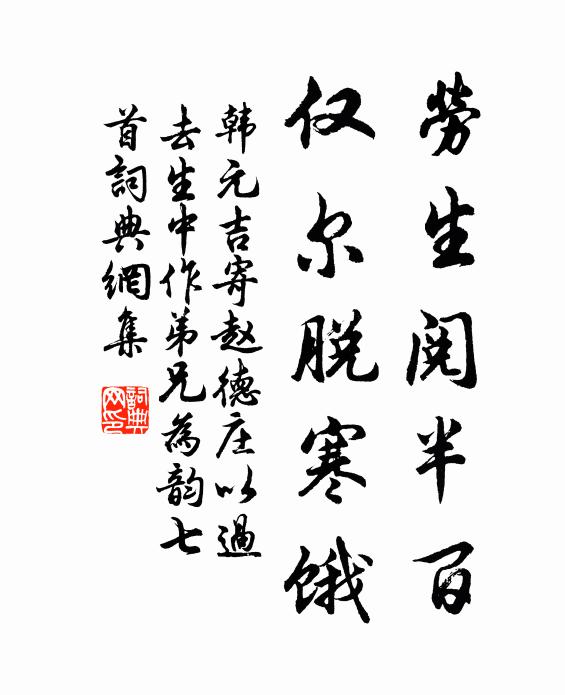 劳生阅半百
仅尔脱寒饿
韩元吉寄赵德庄以过
去生中作弟兄为韵七
首词典网集
词典
网印